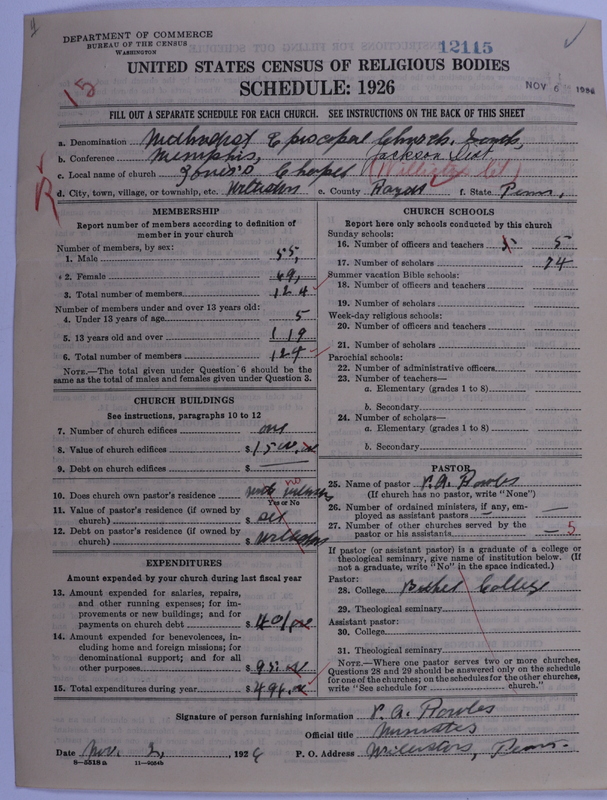 4
DEPARTMENT OF COMMERCE
BUREAU OF THE CENSUS
WASHINGTON
12115
UNITED STATES CENSUS OF RELIGIOUS BODIES
SCHEDULE: 1926
NOV 6 1926
15
FILL OUT A SEPARATE SCHEDULE FOR EACH CHURCH. SEE INSTRUCTIONS ON THE BACK OF THIS SHEET
a. Denomination Methodist Episcopal Church, South,
b. Conference Memphis, Jackson Dist.
c. Local name of church Jones's Chapel
d. City, town, village, or township, etc. e. County f. State Tenn.
R
MEMBERSHIP
Report number of members according to definition of
member in your church
Number of members, by sex:
1. Male 55
2. Female 69
3. Total number of members 124
Number of members under and over 13 years old:
4. Under 13 years of age 5
5. 13 years old and over 119
6. Total number of members 124
NOTE.—The total given under Question 6 should be
the same as the total of males and females given under Question 3.
CHURCH BUILDINGS
See instructions, paragraphs 10 to 12
7. Number of church edifices one
8. Value of church edifices $1500.00
9. Debt on church edifices $
10. Does church own pastor's residence no
Yes or No
11. Value of pastor's residence (if owned by
church) $
12. Debt on pastor's residence (if owned by
church) $
EXPENDITURES
Amount expended by your church during last fiscal year
13. Amount expended for salaries, repairs,
and other running expenses; for im-
provements or new buildings; and for
payments on church debt $401.00
14. Amount expended for benevolences, in-
cluding home and foreign missions; for
denominational support; and for all
other purposes $95.00
15. Total expenditures during year $496.00
CHURCH SCHOOLS
Report here only schools conducted by this church
Sunday schools:
16. Number of officers and teachers 5
17. Number of scholars 74
Summer vacation Bible schools:
18. Number of officers and teachers
19. Number of scholars
Week-day religious schools:
20. Number of officers and teachers
21. Number of scholars
Parochial schools:
22. Number of administrative officers
23. Number of teachers—
a. Elementary (grades 1 to 8)
b. Secondary
24. Number of scholars—
a. Elementary (grades 1 to 8)
b. Secondary
PASTOR
25. Name of pastor V. A. Rowles
(If church has no pastor, write "None")
26. Number of ordained ministers, if any, em-
ployed as assistant pastors —
27. Number of other churches served by the
pastor or his assistants — 5
If pastor (or assistant pastor) is a graduate of a college or
theological seminary, give name of institution below. (If
not a graduate, write "No" in the space indicated.)
Pastor:
28. College Bethel College
29. Theological seminary
Assistant pastor:
30. College
31. Theological seminary
NOTE.—Where one pastor serves two or more churches,
Questions 28 and 29 should be answered only on the schedule
for one of the churches; on the schedules for the other churches,
write "See schedule for church."
Signature of person furnishing information V. A. Rowles
Official title Minister
Date Nov. 2, 1926 P. O. Address Tenn.
8—5518 a 11—9054b